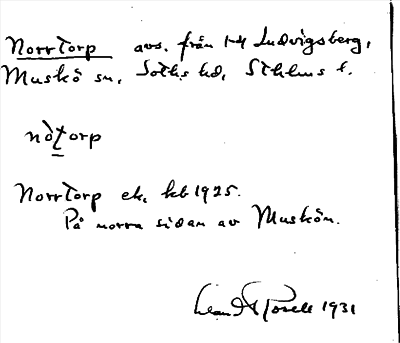 Norrtorp avs. från 1-4 Ludvigsberg,
Muskö sn, Sotks hd, Sthlms l.
nòtorp
Norrtorp ek. kb 1925.
På norra sidan av Muskön.
1931